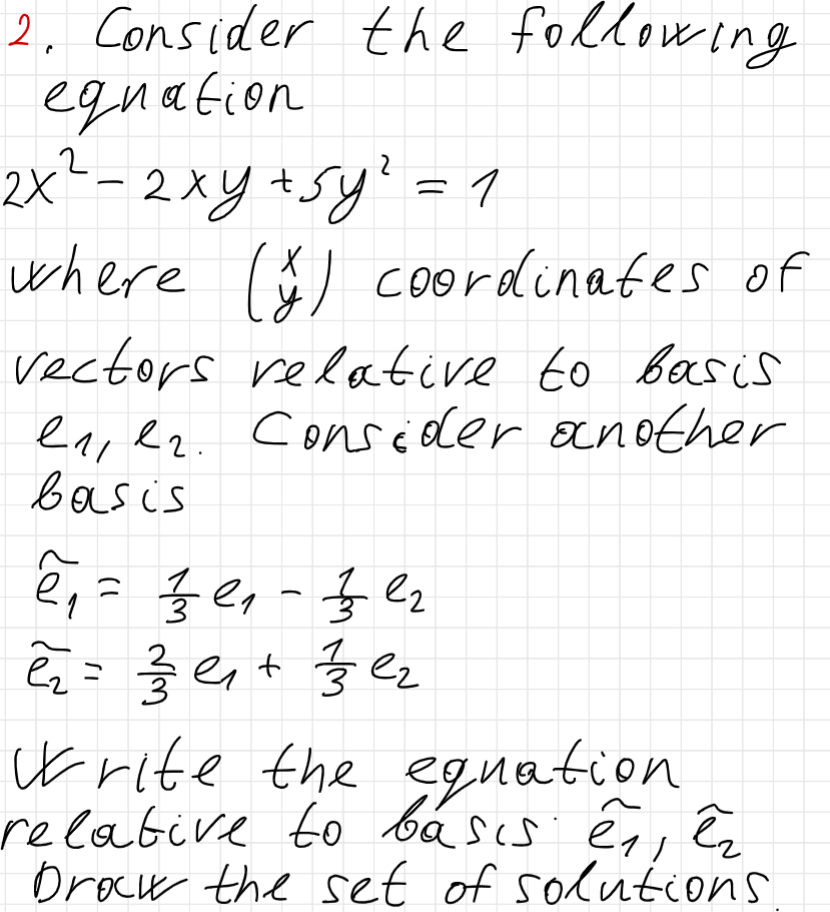 2. Consider the following
equation
2x² - 2xy + 5y² = 1
where (x y) coordinates of
vectors relative to basis
e₁, e₂. Consider another
basis
ẽ₁ = 1/3 e₁ - 1/3 e₂
ẽ₂ = 2/3 e₁ + 1/3 e₂
Write the equation
relative to basis ẽ₁, ẽ₂
Draw the set of solutions.